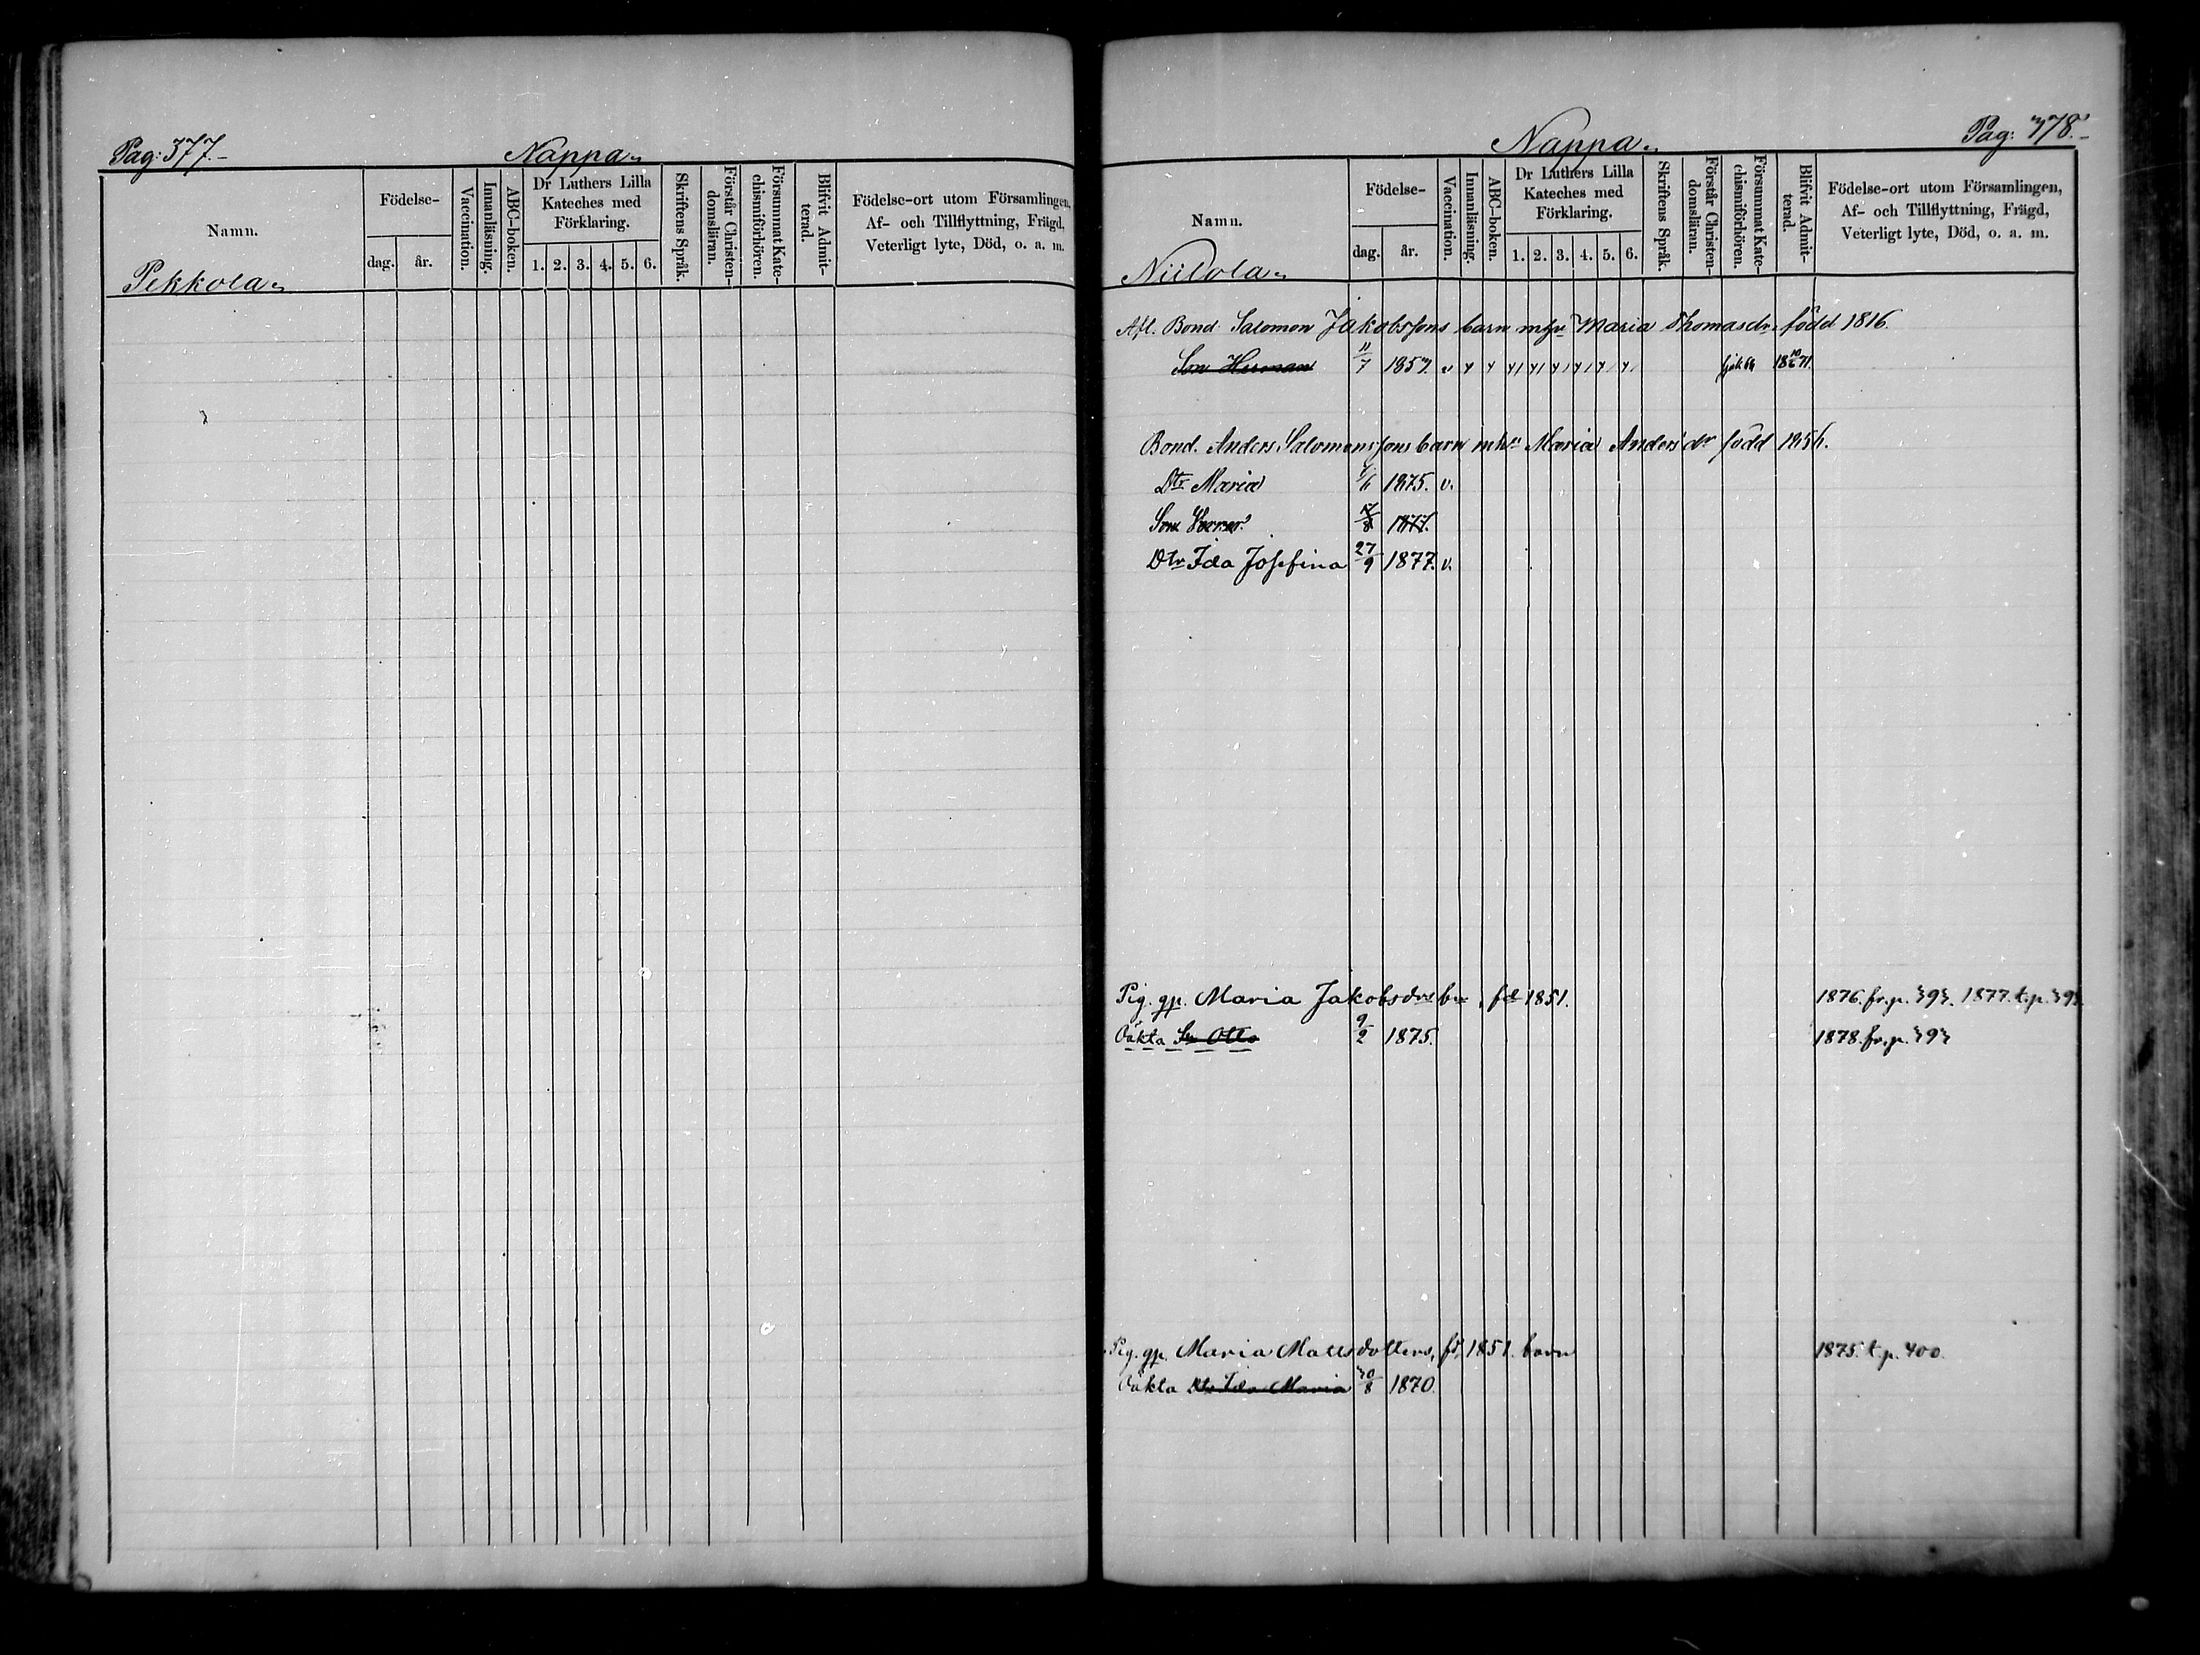 Pag: 377.
Nappa
Namn.
Födelse-
dag. år.
Vaccination.
Innanläsning.
ABC-boken.
Dr Luthers Lilla Kateches med Förklaring.
1. 2. 3. 4. 5. 6.
Skriftens Språk.
Förstår Christendomsläran.
Försummat Katechismiförhören.
Blifvit Admitterad.
Födelse-ort utom Församlingen,
Af- och Tillflyttning, Frägd,
Veterligt lyte, Död, o. a. m.
Pekkola
Nappa
Pag: 378.
Namn.
Födelse-
dag. år.
Vaccination.
Innanläsning.
ABC-boken.
Dr Luthers Lilla Kateches med Förklaring.
1. 2. 3. 4. 5. 6.
Skriftens Språk.
Förstår Christendomsläran.
Försummat Katechismiförhören.
Blifvit Admitterad.
Födelse-ort utom Församlingen,
Af- och Tillflyttning, Frägd,
Veterligt lyte, Död, o. a. m.
Niilola
Afl. Bond. Salomon Jakobssons barn Maria Thomasdr. född 1816.
Son Herman 11/7 1857. v 18 10/6 71.
Bond. Anders Salomonssons barn Maria Andersdr född 1856.
Dtr Maria 1875. v.
Son 1877.
Dtr Ida Josefina 27/9 1877. v.
Pig. gp. Maria Jakobsdrs bn, fd 1851. 1876. fr. p. 393. 1877. t. p. 393
Oäkta Son Otto 9/2 1875. 1878. fr. p. 393
Pig. gp. Maria Mattsdotters, fd 1851. barn 1875. t. p. 400.
Oäkta Dtr Ida Maria 30/8 1870.